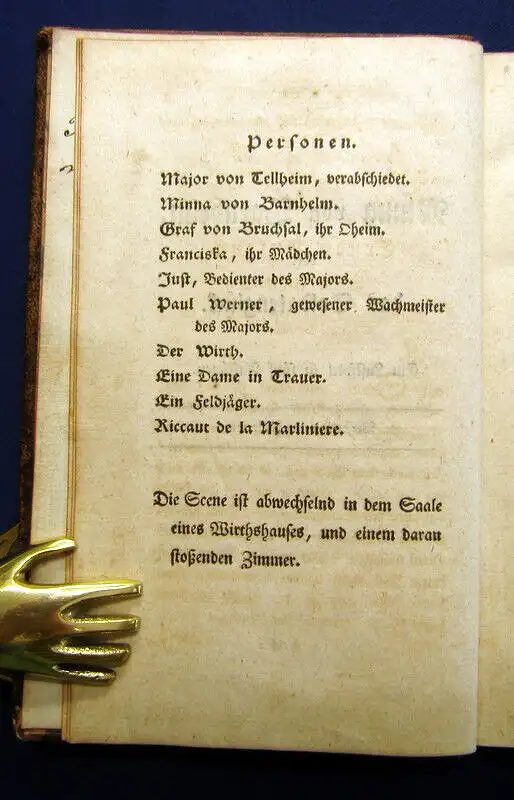 Personen.
Major von Tellheim, verabschiedet.
Minna von Barnhelm.
Graf von Bruchsal, ihr Oheim.
Franciska, ihr Mädchen.
Just, Bedienter des Majors.
Paul Werner, gewesener Wachmeister
des Majors.
Der Wirth.
Eine Dame in Trauer.
Ein Feldjäger.
Riccaut de la Marliniere.
Die Scene ist abwechselnd in dem Saale
eines Wirthshauses, und einem daran
stoßenden Zimmer.